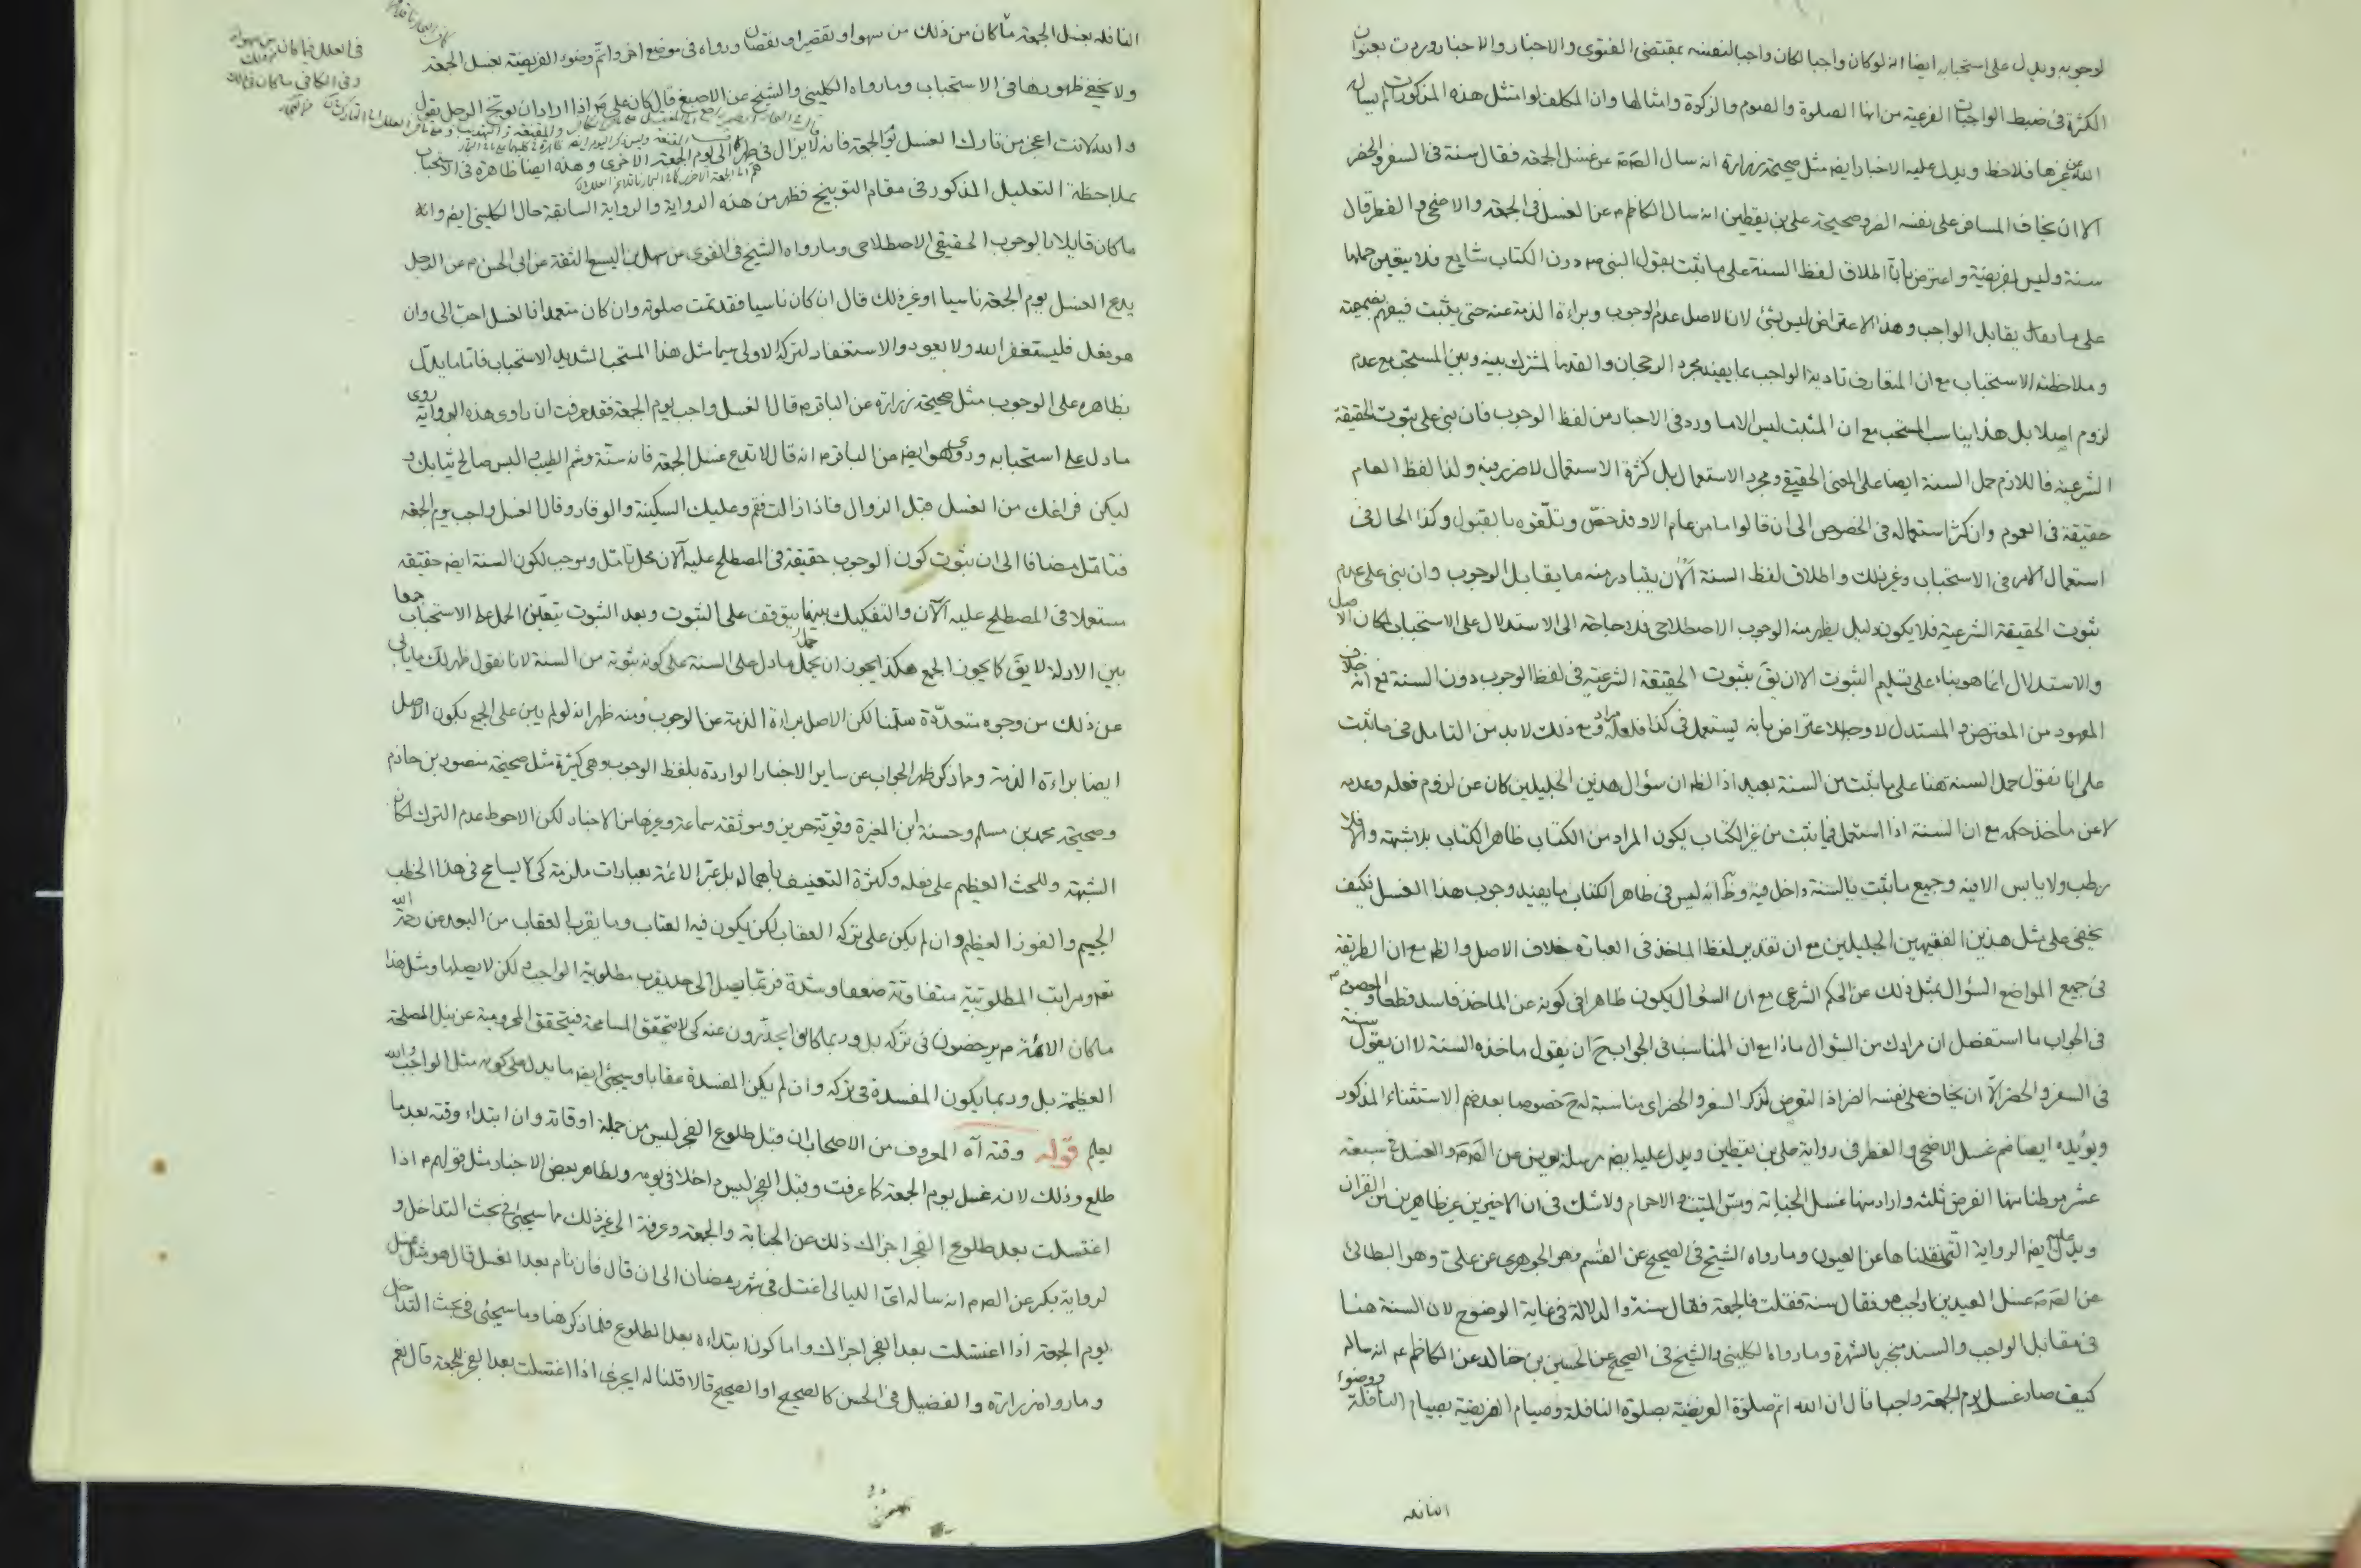 لوجوبه ويدل على استحبابه ايضا انه لو كان واجبا لكان واجبا لنفسه بمقتضى الفتوى والاخبار والاخبار وردت بعنوان
الكثرة في ضبط الواجبات الفرعية من انها الصلوة والصوم والزكوة وامثالها وان المكلف لو امتثل هذه المذكورات لم يسأل
الله عن غيرها فلاحظ ويدل عليه الاخبار ايضا مثل صحيحة زرارة انه سال الصم عن غسل الجمعه فقال سنة في السفر والحضر
الا ان يخاف المسافر على نفسه القر وصحيحة على بن يقطين انه سال الكاظم م عن الغسل في الجمعه والاضحى والفطر قال
سنة وليس بفريضة واعترض بان اطلاق لفظ السنة على ما ثبت بقول النبي ص دون الكتاب شايع فلا يتعين حملها
على ما يقابل الواجب وهذا الاعتراض ليس بشئ لان الاصل عدم الوجوب وبراءة الذمة عنه حتى يثبت فيفهم بضميمته
وملاحظته الاستحباب مع ان المتعارف تادية الواجب بما يفيد مجرد الرجحان والقدر المشترك بينه وبين المستحب مع عدم
لزوم اصلا بل هذا يناسب المستحب مع ان المثبت ليس الا ما ورد في الاخبار من لفظ الوجوب فان بنى على ثبوت الحقيقة
الشرعية فاللازم حمل السنة ايضا على المعنى الحقيقي ومجرد الاستعمال بل كثرة الاستعمال لا ضرر فيه ولذا لفظ العام
حقيقة في العموم وان كثر استعماله في الخصوص الى ان قالوا ما من عام الا وقد خص وتلقوه بالقبول وكذا الحال في
استعمال الامر في الاستحباب وغير ذلك واطلاق لفظ السنة الآن يتبادر منه ما يقابل الوجوب وان بنى على عدم
ثبوت الحقيقة الشرعية فلا يكون دليل يظهر منه الوجوب الاصطلاحي فلا حاجة الى الاستدلال على الاستحباب لمكان الاصل
والاستدلال انما هو بناء على تسليم الثبوت الا ان يق بثبوت الحقيقة الشرعية في لفظ الوجوب دون السنة مع انه خلاف
المعهود من المعترض والمستدل لا وجه لاعتراض بانه يستعمل في كذا فلعله مراد ومع ذلك لا بد من التامل في ما ثبت
على انا نقول حمل السنة هنا على ما ثبت من السنة بعيد اذ الظ ان سؤال هذين الجليلين كان عن لزوم فعله وعدمه
لا عن ماخذ حكمه مع ان السنة اذا استعمل فيما ثبت من غير الكتاب يكون المراد من الكتاب ظاهر الكتاب بلا شبهة والا فلا
رطب ولا يابس الا فيه وجميع ما ثبت بالسنة داخل فيه وظ انه ليس في ظاهر الكتاب ما يفيد وجوب هذا الغسل فكيف
يخفى على مثل هذين الفقيهين الجليلين مع ان تقدير لفظ الماخذ في العبارة خلاف الاصل والظ مع ان الطريقة
في جميع المواضع السؤال بمثل ذلك عن الحكم الشرعي مع ان السؤال يكون ظاهرا في كونه عن الماخذ فاسد قطعا والمعصوم م
في الجواب ما استفصل ان مرادك من السؤال ماذا مع ان المناسب في الجواب ح ان يقول ماخذه السنة لا ان يقول سنة
في السفر والحضر الا ان يخاف على نفسه القر اذ التعرض لذكر السفر والحضر اي مناسبة له ح خصوصا بعد ضم الاستثناء المذكور
ويؤيده ايضا ضم غسل الاضحى والفطر في رواية على بن يقطين ويدل عليه ايضا مرسلة يونس عن الصم والغسل في سبعة
عشر موطنا منها الفرض ثلثة واراد منها غسل الجنابة ومس الميت والاحرام ولا شك في ان الاخيرين غير ظاهرين من القران
ويدل عليه ايضا الرواية التي نقلناها عن العيون وما رواه الشيخ في الصحيح عن القسم وهو الجوهري عن علي وهو البطائني
عن الصم عن غسل العيدين اواجب هو فقال سنة فقلت فالجمعة فقال سنة والدلالة في غاية الوضوح لان السنة هنا
في مقابل الواجب والسند منجبر بالشهرة وما رواه الكليني والشيخ في الصحيح عن الحسين بن خالد عن الكاظم عم انه ساله
كيف صار غسل يوم الجمعه واجبا قال ان الله اتم صلوة الفريضة بصلوة النافلة وصيام الفريضة بصيام النافلة ووضوء
النافله
النافله بغسل الجمعه ما كان من ذلك من سهو او تقصير او نقصان ورواه في موضع اخر واتم وضوء الفريضة بغسل الجمعه
ولا يخفى ظهورها في الاستحباب وما رواه الكليني والشيخ عن الاصبغ قال كان علي م اذا اراد ان يوبخ الرجل يقول
والله لانت اعجز من تارك الغسل يوم الجمعه فانه لا يزال في طهر الى يوم الجمعه الاخرى وهذه ايضا ظاهرة في الاستحباب
بملاحظة التعليل المذكور في مقام التوبيخ فظهر من هذه الرواية والرواية السابقة حال الكليني ايضا وانه
ما كان قايلا بالوجوب الحقيقي الاصطلاحي وما رواه الشيخ في القوي عن سهل بن اليسع الثقة عن ابي الحسن م عن الرجل
يدع الغسل يوم الجمعه ناسيا او غير ذلك قال ان كان ناسيا فقد تمت صلوته وان كان متعمدا فالغسل احب الى وان
هو فعل فليستغفر الله ولا يعود والاستغفار لترك الاولى سيما مثل هذا المستحب الشديد الاستحباب فاما ما يدل
بظاهره على الوجوب مثل صحيحة زرارة عن الباقر م قال الغسل واجب يوم الجمعة فقد عرفت ان راوي هذه الرواية روى
ما دل على استحبابه وروى هو ايضا عن الباقر م انه قال لا تدع غسل الجمعه فانه سنة وشم الطيب والبس صالح ثيابك و
ليكن فراغك من الغسل قبل الزوال فاذا زالت فقم وعليك السكينة والوقار وقال الغسل واجب يوم الجمعه
فتامل مضافا الى ان ثبوت كون الوجوب حقيقة في المصطلح عليه الآن محل تامل وموجب لكون السنة ايضا حقيقه
مستعملا في المصطلح عليه الآن والتفكيك بينهما يتوقف على الثبوت وبعد الثبوت يتعين الحمل على الاستحباب جمعا
بين الادلة لا يق كما يجوز الجمع هكذا يجوز ان يحمل ما دل على السنة على كونه ثبوته من السنة لانا نقول ظهر لك ما يابى
عن ذلك من وجوه متعددة سلمنا لكن الاصل براءة الذمة عن الوجوب ومنه ظهر انه لو لم يبن على الجمع يكون الاصل
ايضا براءة الذمة ومما ذكر ظهر الجواب عن ساير الاخبار الواردة بلفظ الوجوب وهي كثيرة مثل صحيحة منصور بن حازم
وصحيحة محمد بن مسلم وحسنة ابن المغيرة وقوية حريز وموثقة سماعة وغيرها من الاخبار لكن الاحوط عدم الترك لمكان
الشبهة وللحث العظيم على فعله وكثرة التعنيف باهماله بل عبر الائمة بعبارات ملزمة كي لا يسامح في هذا الخطب
الجسيم والفوز العظيم وان لم يكن على تركه العقاب لكن يكون فيه العتاب وما يقرب العقاب من البعد عن رحمة الله
نعم ومراتب المطلوبية متفاوتة ضعفا وشدة فربما يصل الى حد يقرب مطلوبية الواجب ولكن لا يصلها ومثل هذا
ما كان الائمة م يرخصون في تركه بل وربما كانوا يحذرون عنه كي لا يتحقق المسامحة فيتحقق المحرومية عن نيل المصلحة
العظيمة بل وربما يكون المفسدة في تركه وان لم يكن المفسدة عقابا وسيجئ ايضا ما يدل على كونه مثل الواجب والله
يعلم قوله وقته آه المعروف من الاصحاب ان قبل طلوع الفجر ليس من جملة اوقاته وان ابتداء وقته بعد ما
طلع وذلك لانه غسل يوم الجمعة كما عرفت وقبل الفجر ليس داخلا في يومه ولظاهر بعض الاخبار مثل قولهم م اذا
اغتسلت بعد طلوع الفجر اجزاك ذلك عن الجنابة والجمعه وعرفة الى غير ذلك مما سيجئ في بحث التداخل و
لرواية بكير عن الصم انه ساله اي الليالي اغتسل في شهر رمضان الى ان قال فان نام بعد الغسل قال هو مثل غسل
يوم الجمعة اذا اغتسلت بعد الفجر اجزاك واما كون ابتداءه بعد الطلوع فلما ذكر هنا وما سيجئ في بحث التداخل
وما رواه زرارة والفضيل في الحسن كالصحيح او الصحيح قالا قلنا له ايجزي اذا اغتسلت بعد الفجر للجمعة قال نعم